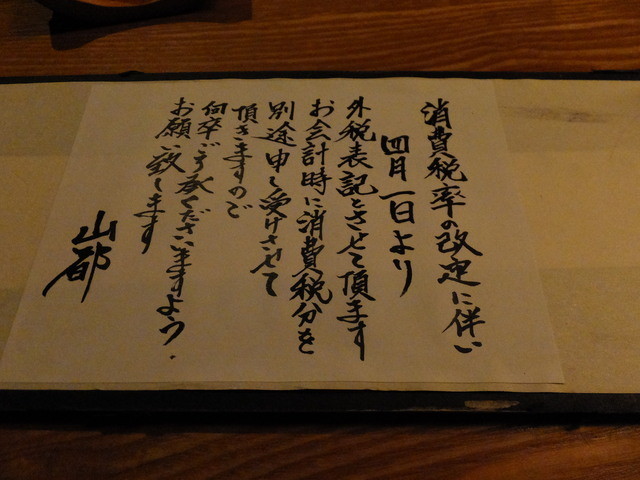 消費税率の改定に伴い
四月一日より
外税表記とさせて頂ます
お会計時に消費税分を
別途申し受けさせて
頂きますので
何卒ご了承くださいますよう、
お願い致します
山都